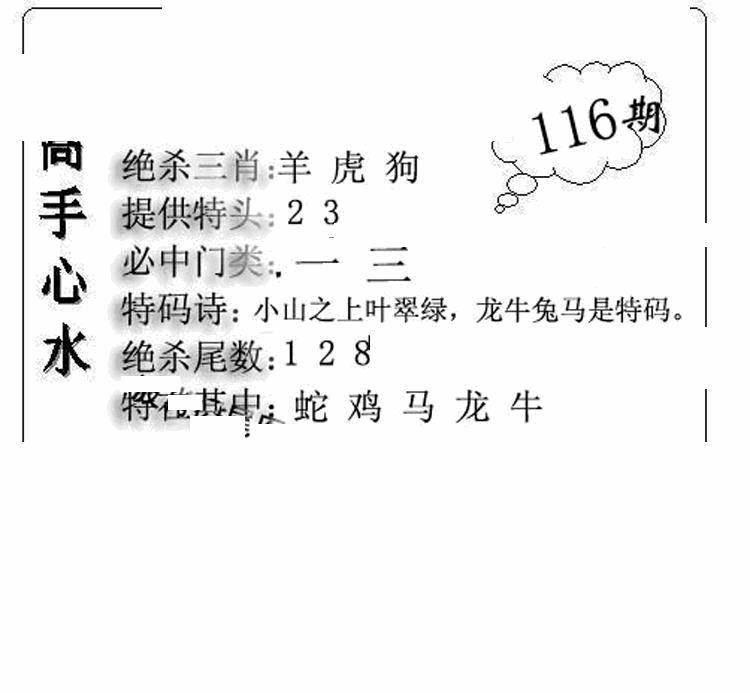 116期
高手心水
绝杀三肖:羊 虎 狗
提供特头:2 3
必中门类:一 三
特码诗:小山之上叶翠绿，龙牛兔马是特码。
绝杀尾数:1 2 8
特在其中:蛇 鸡 马 龙 牛